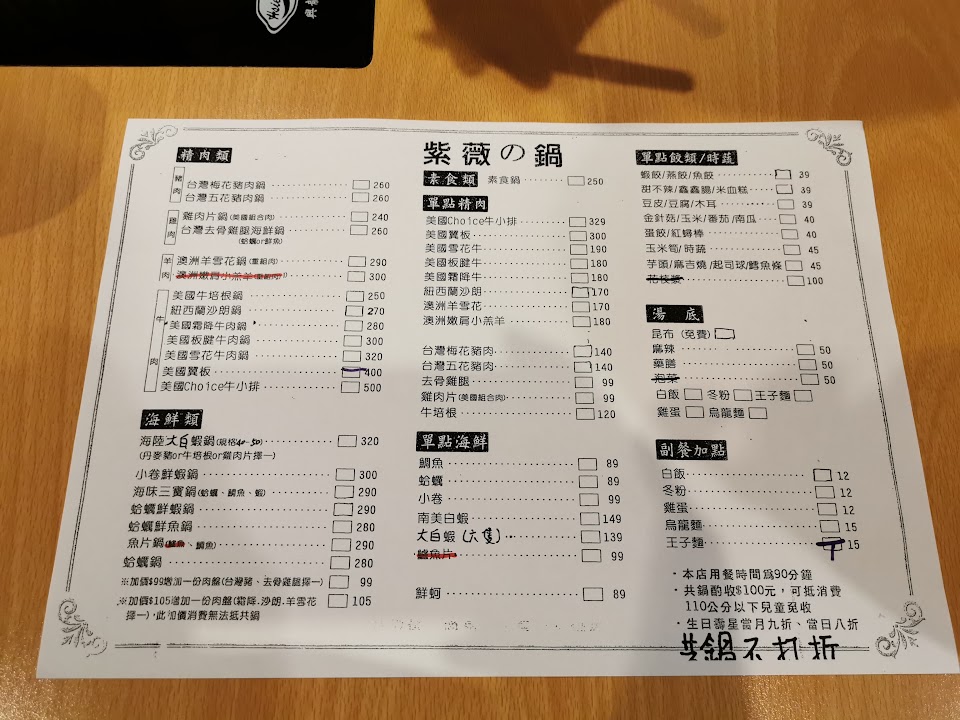 紫薇の鍋
精肉類
豬肉
台灣梅花豬肉鍋 260
台灣五花豬肉鍋 260
雞肉
雞肉片鍋(美國組合肉) 240
台灣去骨雞腿海鮮鍋 260
(蛤蠣or鮮魚)
羊肉
澳洲羊雪花鍋(重組肉) 290
澳洲嫩肩小羔羊(重組肉) 300
牛肉
美國牛培根鍋 250
紐西蘭沙朗鍋 270
美國霜降牛肉鍋 280
美國板腱牛肉鍋 300
美國雪花牛肉鍋 320
美國翼板 400
美國Choice牛小排 500
海鮮類
海陸大白蝦鍋(規格40-50) 320
(丹麥豬or牛培根or雞肉片擇一)
小卷鮮蝦鍋 300
海味三寶鍋(蛤蠣、鯛魚、蝦) 290
蛤蠣鮮蝦鍋 290
蛤蠣鮮魚鍋 280
魚片鍋(鱸魚、鯛魚) 290
蛤蠣鍋 280
※加價$99增加一份肉盤(台灣豬、去骨雞腿擇一) 99
※加價$105增加一份肉盤(霜降.沙朗.羊雪花 105
擇一)，此加價消費無法抵共鍋
素食類 素食鍋 250
單點精肉
美國Choice牛小排 329
美國翼板 300
美國雪花牛 190
美國板腱牛 180
美國霜降牛 180
紐西蘭沙朗 170
澳洲羊雪花 170
澳洲嫩肩小羔羊 180
台灣梅花豬肉 140
台灣五花豬肉 140
去骨雞腿 99
雞肉片(美國組合肉) 99
牛培根 120
單點海鮮
鯛魚 89
蛤蠣 89
小卷 99
南美白蝦 149
大白蝦(六隻) 139
鱸魚片 99
鮮蚵 89
單點餃類/時蔬
蝦餃/燕餃/魚餃 39
甜不辣/鑫鑫腸/米血糕 39
豆皮/豆腐/木耳 39
金針菇/玉米/番茄/南瓜 40
蛋餃/紅蟳棒 40
玉米筍/時蔬 45
芋頭/麻吉燒/起司球/鱈魚條 45
花枝漿 100
湯 底
昆布(免費)
麻辣 50
藥膳 50
泡菜 50
白飯 冬粉 王子麵
雞蛋 烏龍麵
副餐加點
白飯 12
冬粉 12
雞蛋 12
烏龍麵 15
王子麵 15
・本店用餐時間為90分鐘
・共鍋酌收$100元，可抵消費
110公分以下兒童免收
・生日壽星當月九折、當日八折
共鍋不打折